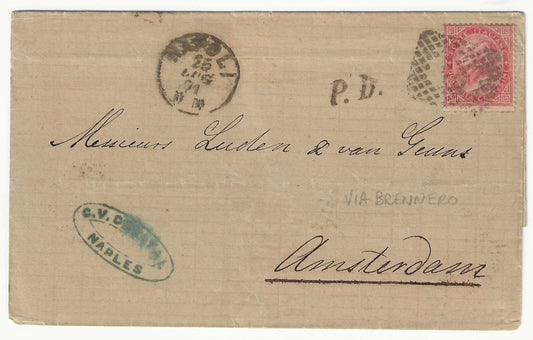 NAPOLI
25
LUG
71
P. D.
POSTE ITALIANE
Messieurs Luden & van Geuns
VIA BRENNERO
C.V.
NAPLES
Amsterdam